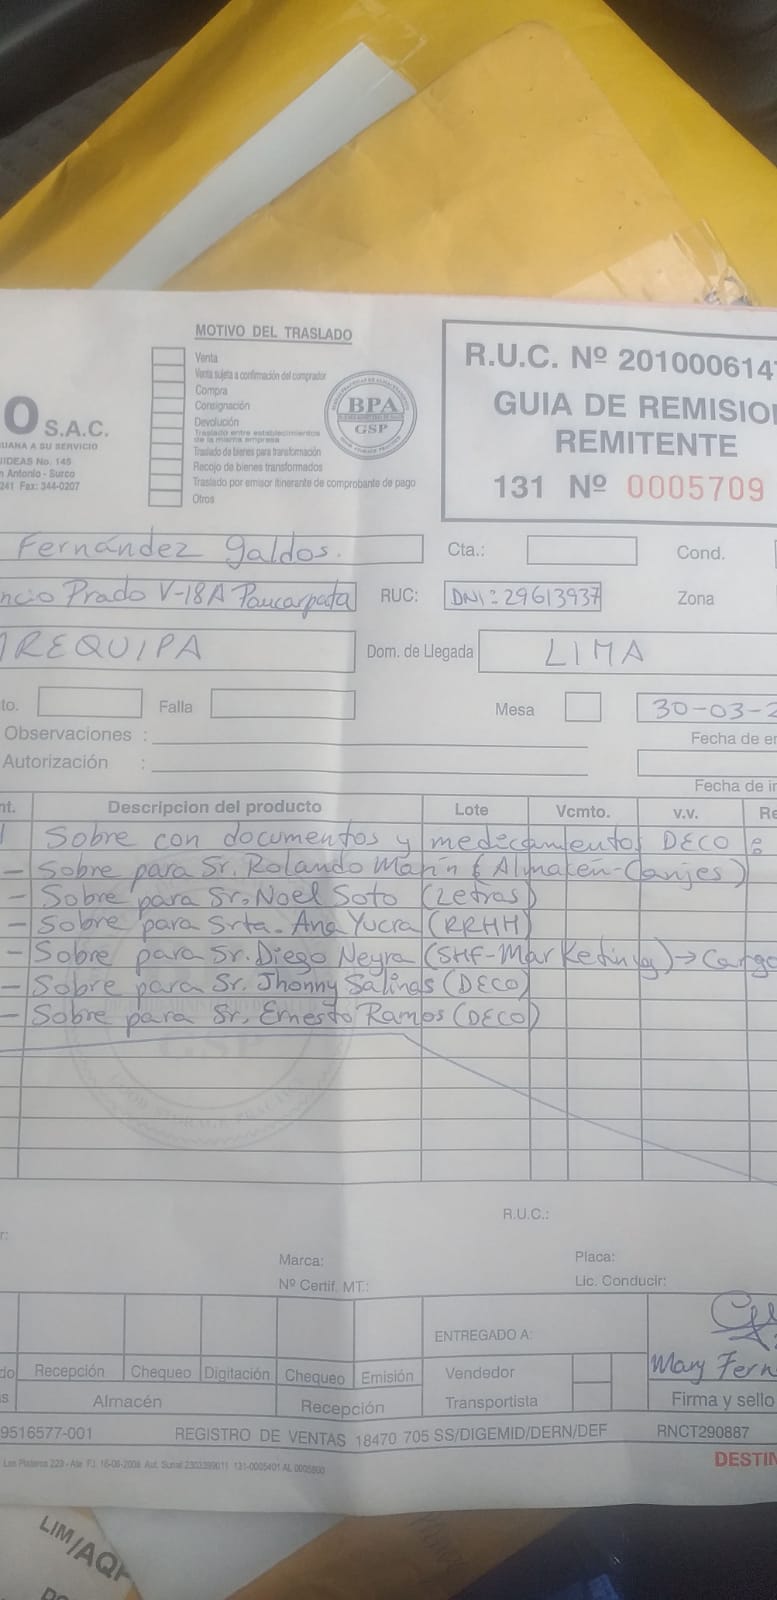 MOTIVO DEL TRASLADO
Venta
Venta sujeta a confirmación del comprador
Compra
Consignación
Devolución
Traslado entre establecimientos
de la misma empresa
Traslado de bienes para transformación
Recojo de bienes transformados
Traslado por emisor itinerante de comprobante de pago
Otros
BPA
GSP
O S.A.C.
UANA A SU SERVICIO
IDEAS No. 145
n Antonio - Surco
241 Fax: 344-0207
R.U.C. Nº 2010006147
GUIA DE REMISIO
REMITENTE
131 Nº 0005709
Fernández Galdos.
Cta.:
Cond.
ncio Prado V-18A Paucarpata
RUC:
DNI: 29613937
Zona
AREQUIPA
Dom. de Llegada
LIMA
to.
Falla
Mesa
30-03-2
Observaciones :
Fecha de e
Autorización :
Fecha de i
nt. Descripcion del producto Lote Vcmto. v.v. Re
1 Sobre con documentos y medicamentos DECO :
- Sobre para Sr. Rolando Marín (Almacén-Canjes)
- Sobre para Sr. Noel Soto (Letras)
- Sobre para Srta. Ana Yucra (RRHH)
- Sobre para Sr. Diego Neyra (SHF-Marketing) → Cargo
- Sobre para Sr. Jhonny Salinas (DECO)
- Sobre para Sr. Ernesto Ramos (DECO)
R.U.C.:
r:
Marca:
Placa:
Nº Certif. MT.:
Lic. Conducir:
ENTREGADO A:
Mary Fern
do Recepción Chequeo Digitación Chequeo Emisión Vendedor
s Almacén Recepción Transportista Firma y sello
9516577-001 REGISTRO DE VENTAS 18470 705 SS/DIGEMID/DERN/DEF RNCT290887
DESTIN
131-0005401 AL 0005800
LIM/AQP